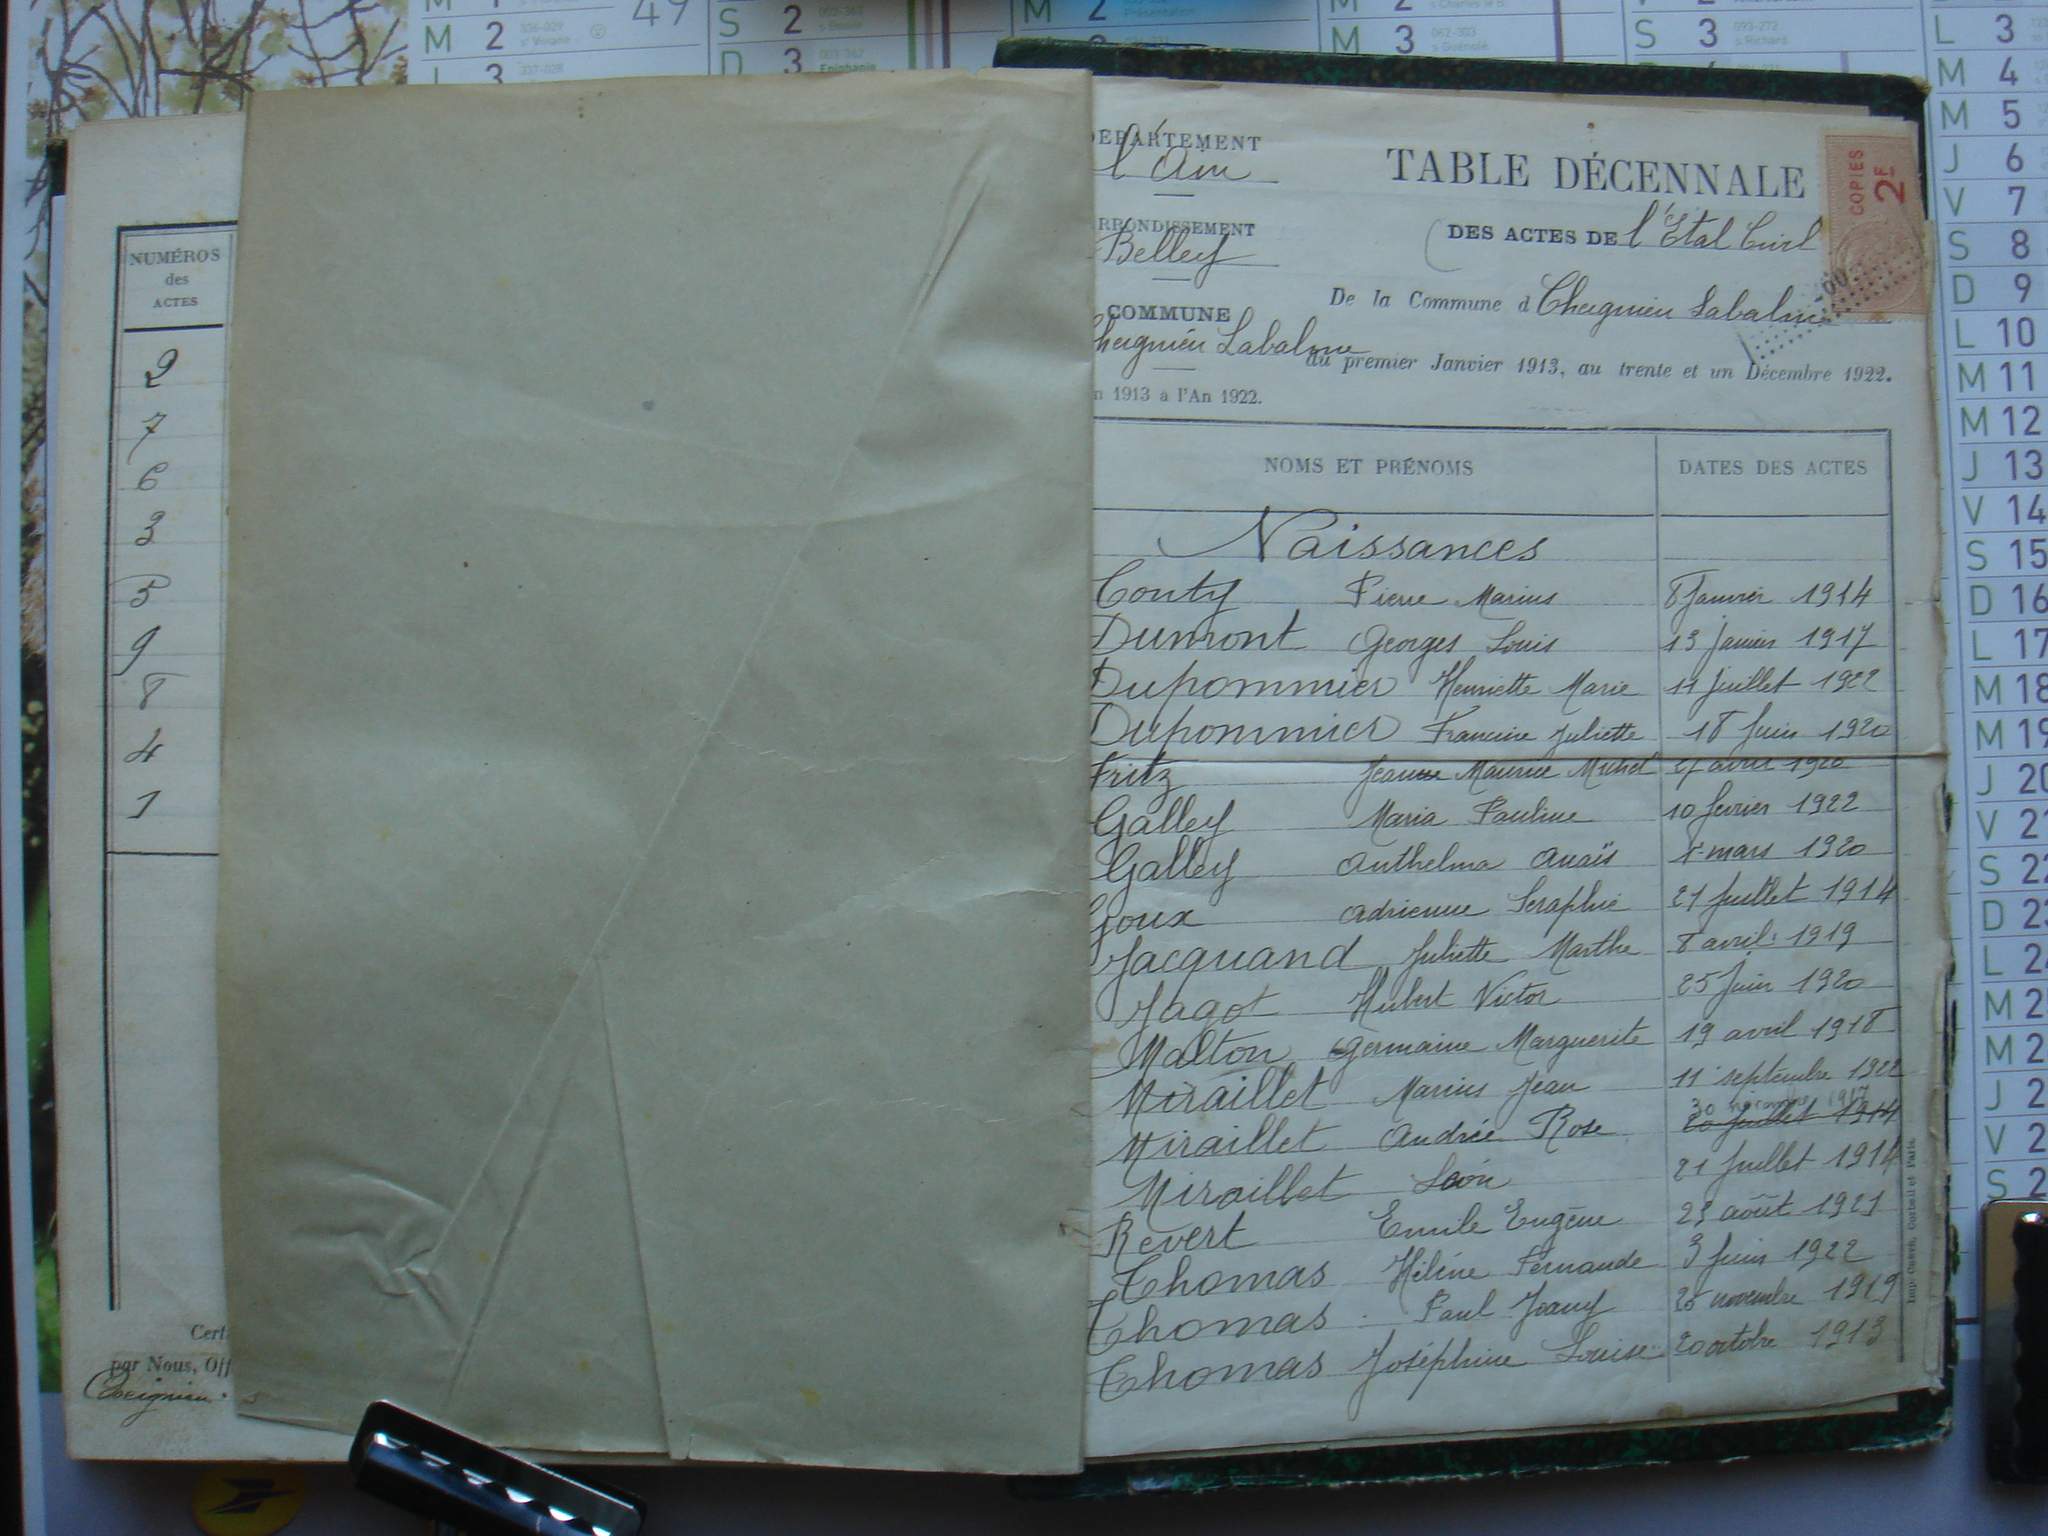 NUMÉROS
des
ACTES
2
7
6
3
5
9
8
4
1
Cert
par Nous, Off
DÉPARTEMENT
l'Ain
RRONDISSEMENT
Belley
COMMUNE
Cheignieu Labalme
n 1913 à l'An 1922.
TABLE DÉCENNALE
DES ACTES DE l'Etat Civil
De la Commune d Cheignieu Labalme
du premier Janvier 1913, au trente et un Décembre 1922.
COPIES
2F
NOMS ET PRÉNOMS DATES DES ACTES
Naissances
Conty Pierre Marius 8 Janvier 1914
Dumont Georges Louis 13 janvier 1917
Dupommier Henriette Marie 11 Juillet 1922
Dupommier Francine Juliette 18 Juin 1920
Fritz Jean Maurice Michel 27 avril 1920
Galley Maria Pauline 10 fevrier 1922
Galley Anthelma Anaïs mars 1920
Goux Adrienne Seraphie 21 Juillet 1914
Jacquand Juliette Marthe 8 avril 1919
Jagot Hubert Victor 25 Juin 1920
Malton Germaine Marguerite 19 avril 1918
Miraillet Marius Jean 11 septembre 1922
30 novembre 1917
Miraillet Andrée Rose 20 Juillet 1914
Miraillet Léon 21 Juillet 1914
Revert Emile Eugène 23 août 1921
Thomas Hélène Fernande 3 Juin 1922
Thomas Paul Joany 25 novembre 1919
Thomas Joséphine Louise 20 octobre 1913
M 2
L 3
49
S 2
D 3 Epiphanie
M 2
M 2
M 3
S 3
L 3
M 4
M 5
J 6
V 7
S 8
D 9
L 10
M 11
M 12
J 13
V 14
S 15
D 16
L 17
M 18
M 19
J 20
V 21
S 22
D 23
L 24
M 2
M 2
J 2
V 2
S 2